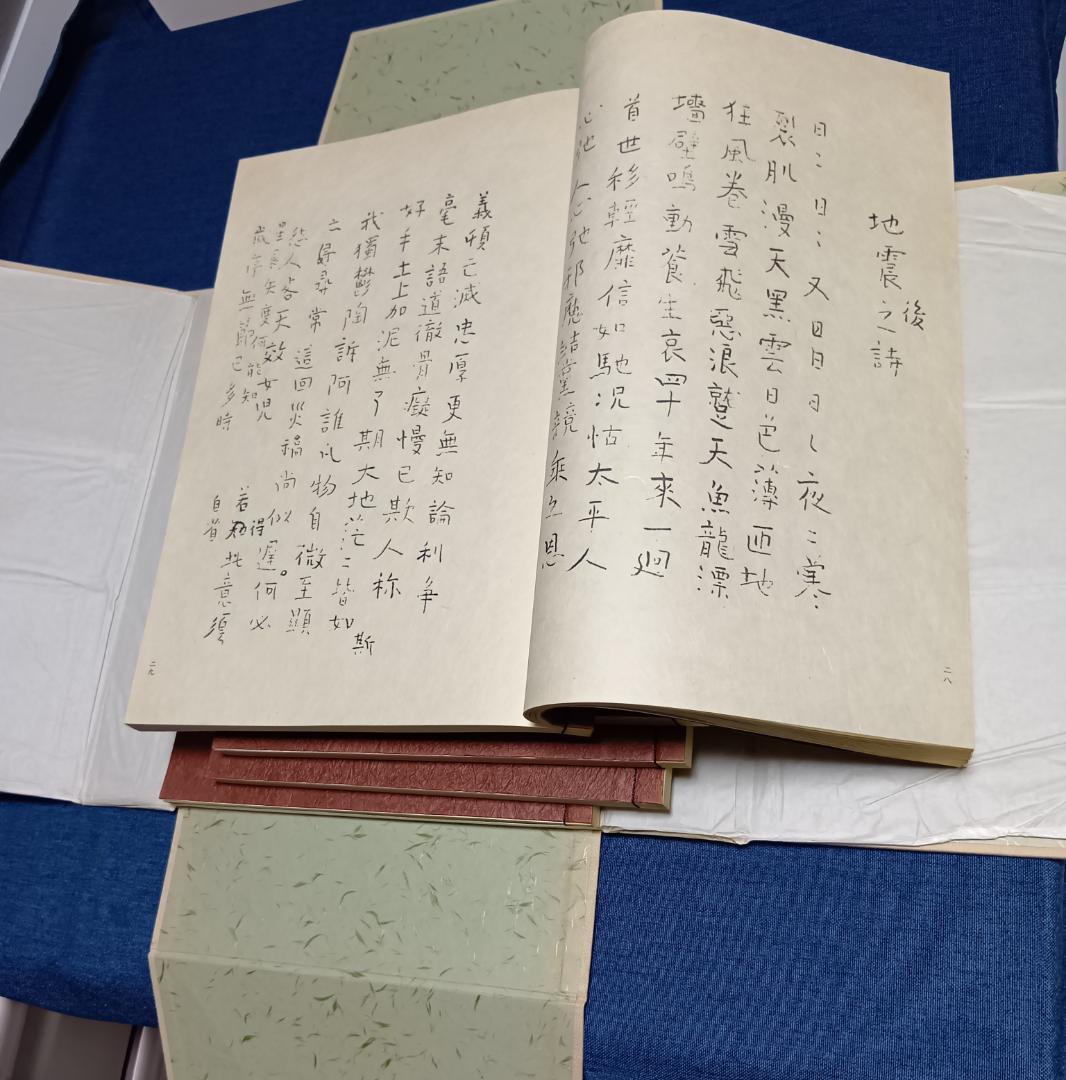 地震後之詩
日〻日〻又日日日し夜〻寒〻
裂肌漫天黒雲日色薄匝地
狂風巻雪飛惡浪蹴天魚龍漂
墻壁鳴動蒼生哀四十年來一廻
首世移輕靡信如馳況怙太平人
心弛人心弛邪魔結黨競乗之恩
二八
義頓亡滅忠厚更無知論利争
毫末語道徹骨癡慢己欺人称
好手土上加泥無了期大地茫〻皆如斯
我獨鬱陶訴阿誰凡物自微至顕
尋常這回災禍尚似遲。何必
怨人咎天效女児
星辰失度何能知
歳序無節已多時
若得此意須
自省
二九